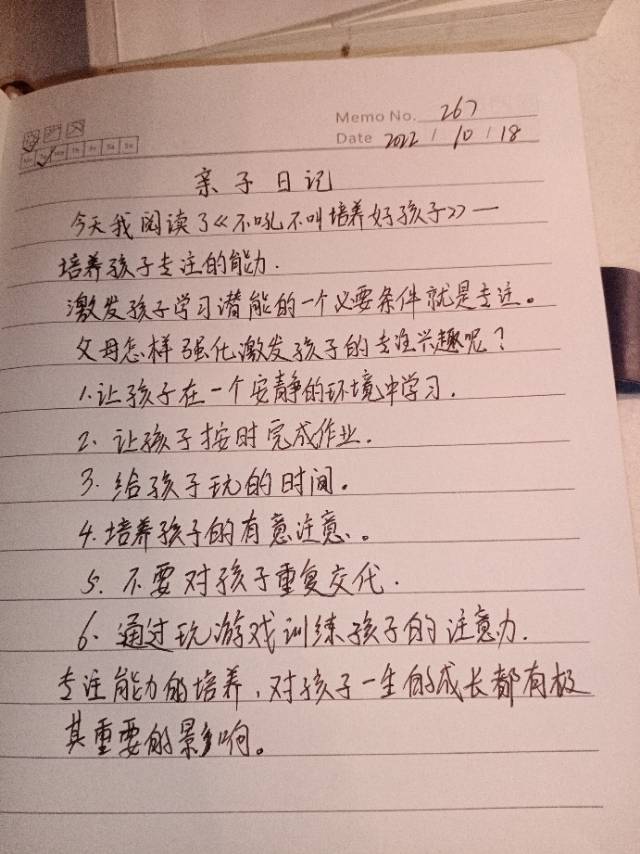 Memo No. 267
Date 2022 / 10 / 18
亲子日记
今天我阅读了《不吼不叫培养好孩子》一
培养孩子专注的能力.
激发孩子学习潜能的一个必要条件就是专注。
父母怎样强化激发孩子的专注兴趣呢？
1.让孩子在一个安静的环境中学习.
2. 让孩子按时完成作业.
3. 给孩子玩的时间。
4.培养孩子的有意注意。
5. 不要对孩子重复交代.
6. 通过玩游戏训练孩子的注意力.
专注能力的培养,对孩子一生的成长都有极
其重要的影响。